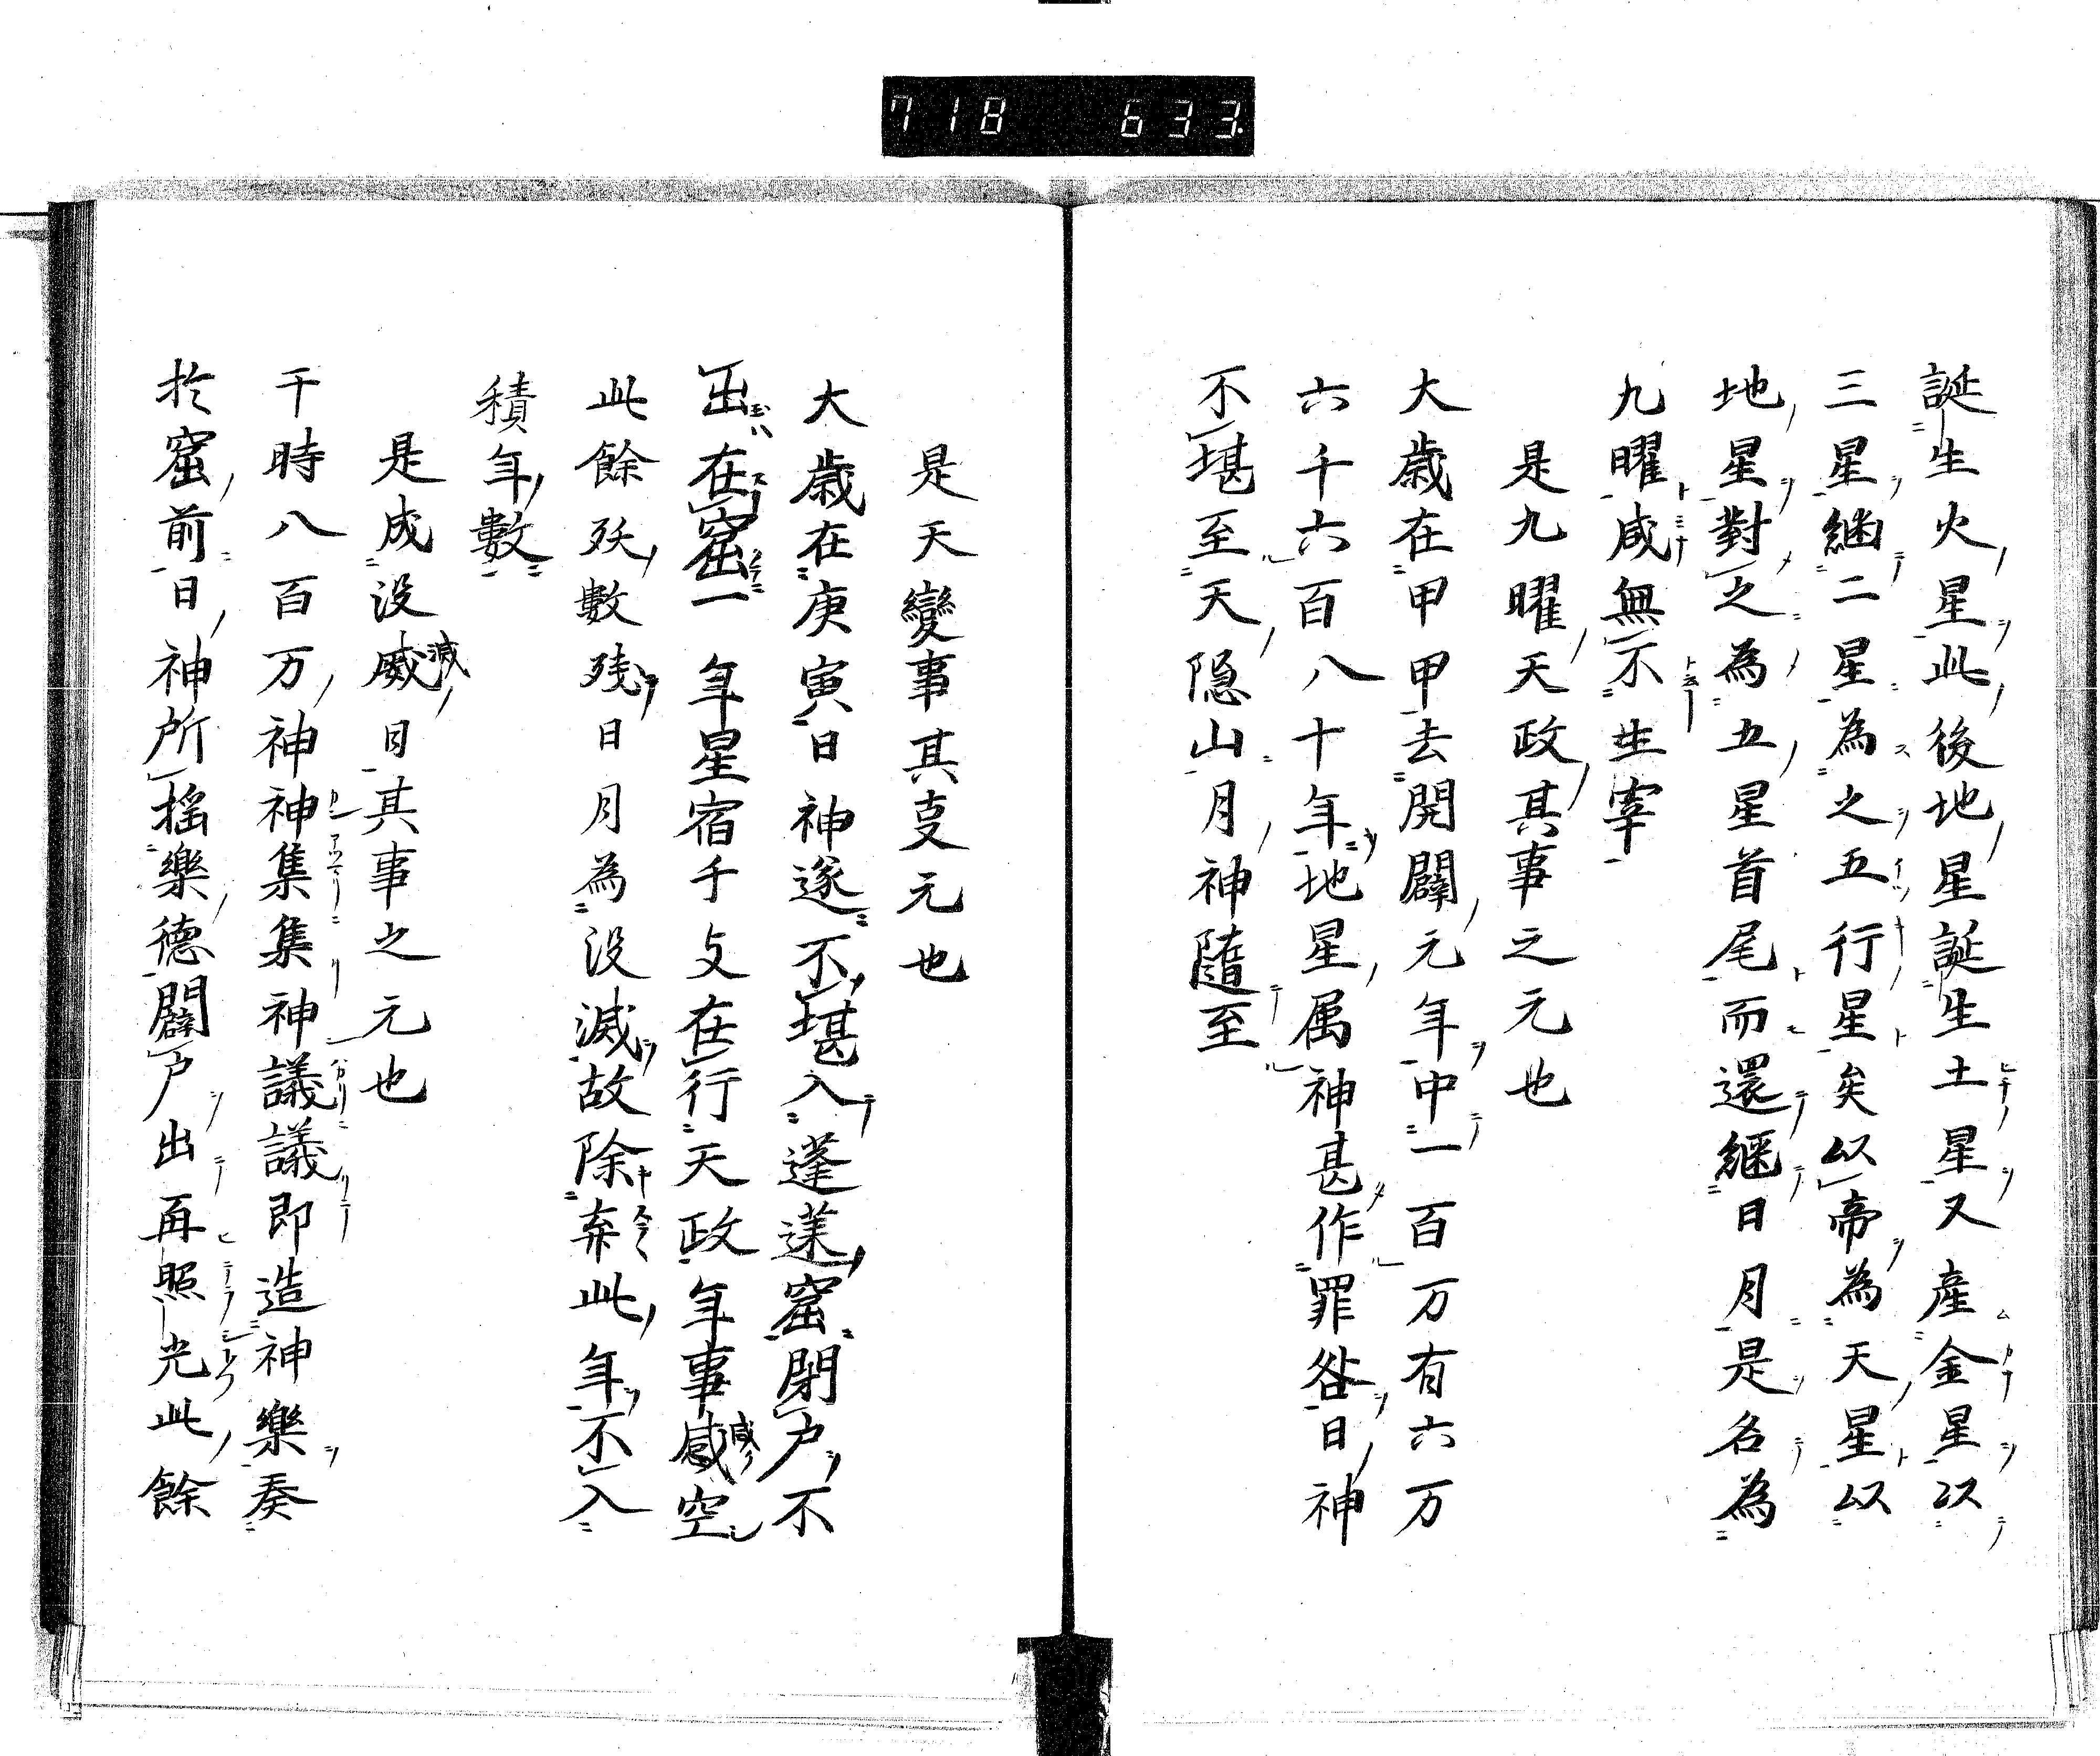 718 633.
誕生火星此後地星誕生土星又産金星以
三星継二星為之五行星矣以帝為天星以
地星對之為五星首尾而還継日月是名為
九曜咸無不生宰
是九曜天政其事之元也
大歳在甲甲去開闢元年中一百万有六万
六千六百八十年地星属神甚作罪咎日神
不堪至天隠山月神隨至
是天變事其㕝元也
大歳在庚寅日神遂不堪入蓬𫟒窟閉戸不
出在窟一年星宿千攴在行天政年事咸空
此餘殀數残日月為没滅故除弃此年不入
積年數
是成没威滅日其事之元也
于時八百万神神集集神議議即造神樂奏
於窟前日神所揺樂德闢戸出再照光此餘